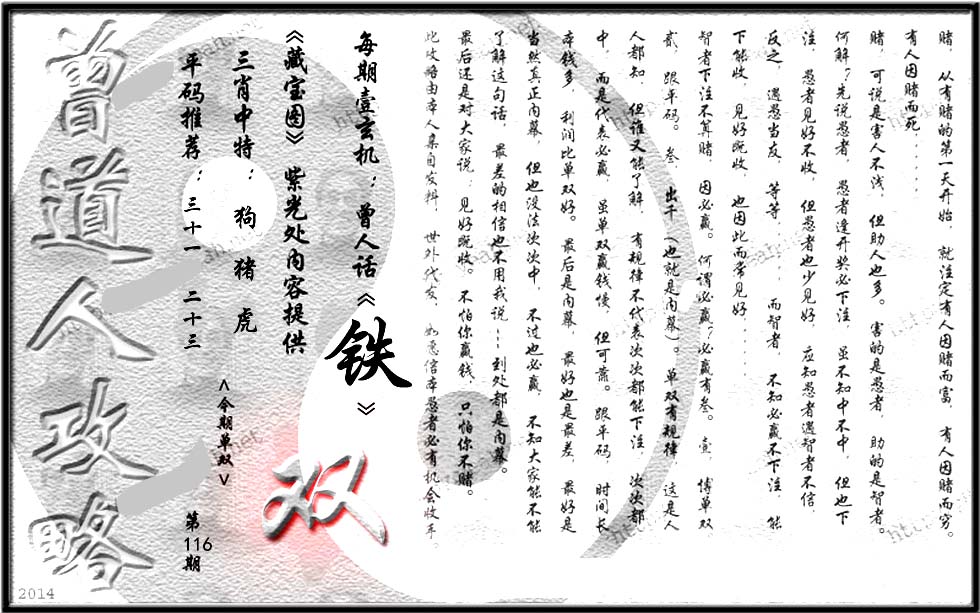 赌，从有赌的第一天开始，就注定有人因赌而富，有人因赌而穷。
有人因赌而死......
赌，可说是害人不浅，但助人也多。害的是愚者，助的是智者。
何解？先说愚者，愚者逢开奖必下注，虽不知中不中，但也下
注，愚者见好不收，但愚者也少见好，应知愚者遇智者不信，
反之，遇愚当友，等等......而智者，不知必赢不下注，能
下能收，见好既收，也因此而常见好......
智者下注不算赌，因必赢。何谓必赢？必赢有叁。壹，博单双，
贰，跟平码。叁，出千（也就是内幕）。单双有规律，这是人
人都知，但谁又能了解，有规律不代表次次都能下注，次次都
中，而是代表必赢，虽单双赢钱慢，但可靠。跟平码，时间长
本钱多，利润比单双好。最后是内幕，最好也是最差，最好是
当然真正内幕，但也没法次次中，不过也必赢，不知大家能不能
了解这句话，最差的相信也不用我说---到处都是内幕。
最后还是对大家说：见好既收。不怕你赢钱，只怕你不赌。
此攻略由本人集自资料，世外代友，如愿信本愚者必有机会收手。
每期壹玄机：曾人话《铁》
《藏宝图》紫光处内容提供
三肖中特：狗 猪 虎
平码推荐：三十一 二十三
<今期单双>
双
第116期
曾道人攻略
2014